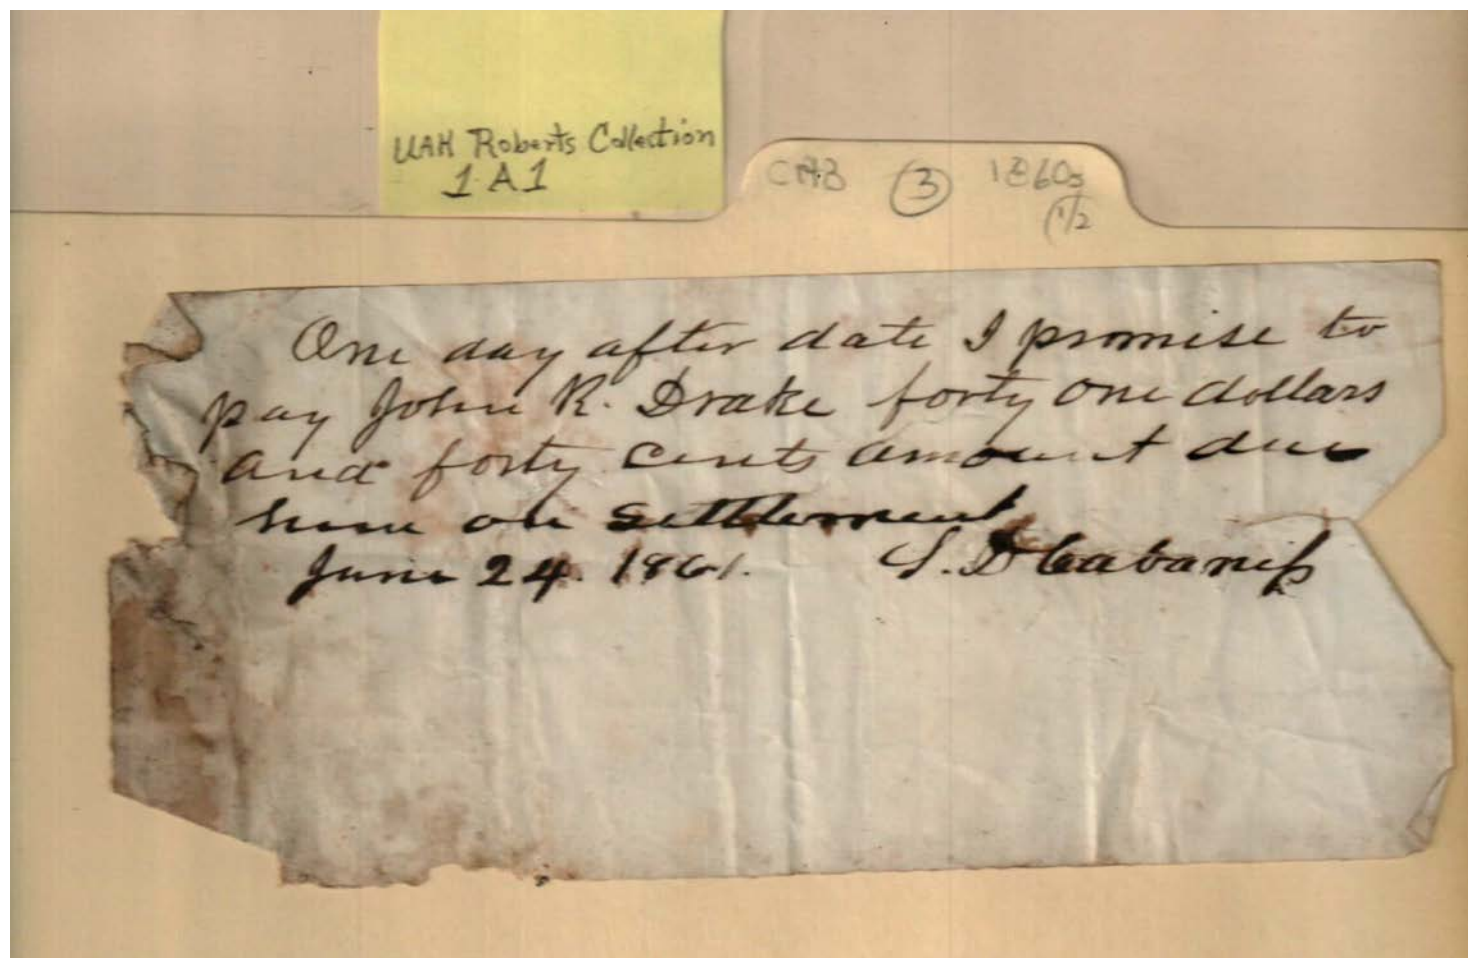 UAH Roberts Collection
1 A 1
CAB 3 1860s
1/2
One day after date I promise to
pay John R. Drake forty one dollars
and forty cents amount due
him on settlement
June 24. 1861. S. D Cabaniss